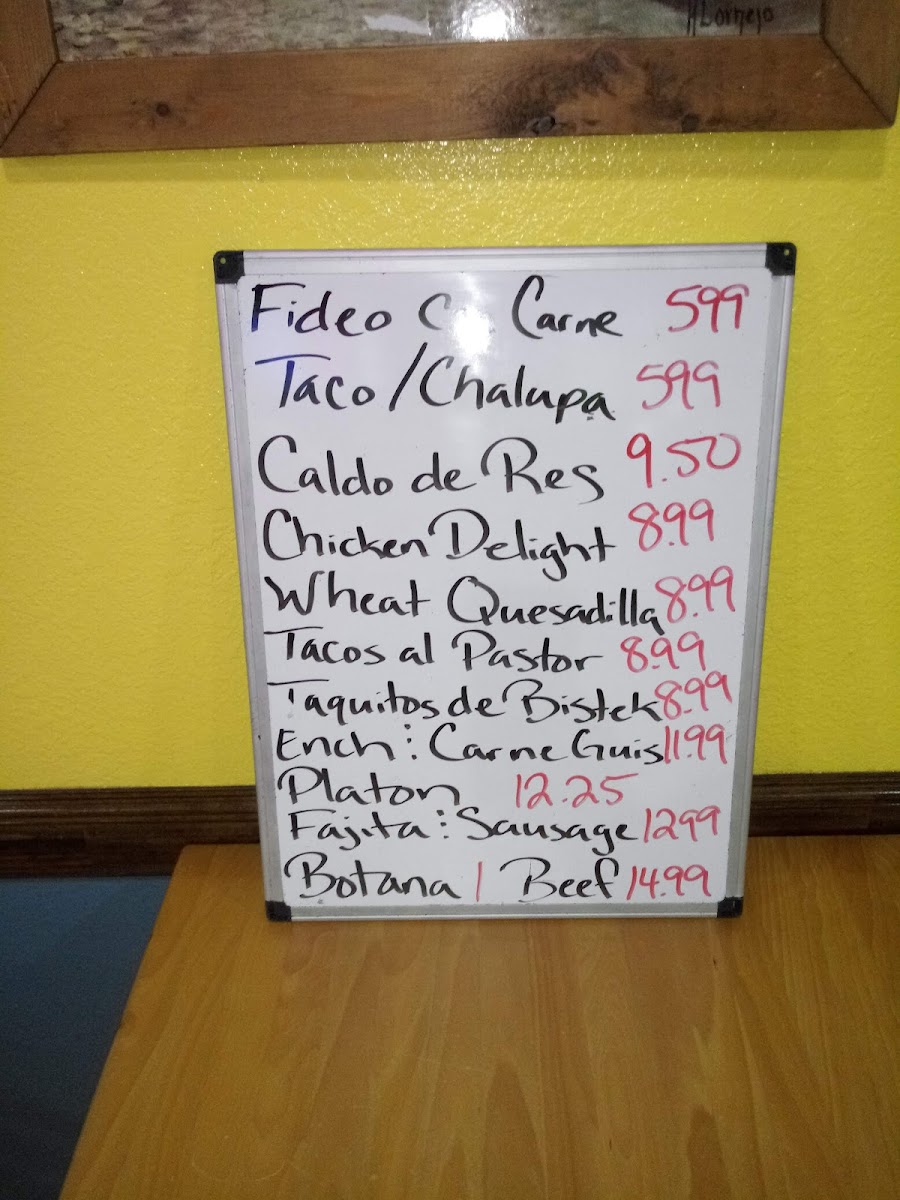 HCornejo
Fideo C Carne 599
Taco/Chalupa 599
Caldo de Res 9.50
Chicken Delight 8.99
Wheat Quesadilla 8.99
Tacos al Pastor 8.99
Taquitos de Bistek 8.99
Ench: Carne Guis 11.99
Platon 12.25
Fajita: Sausage 1299
Botana | Beef 14.99